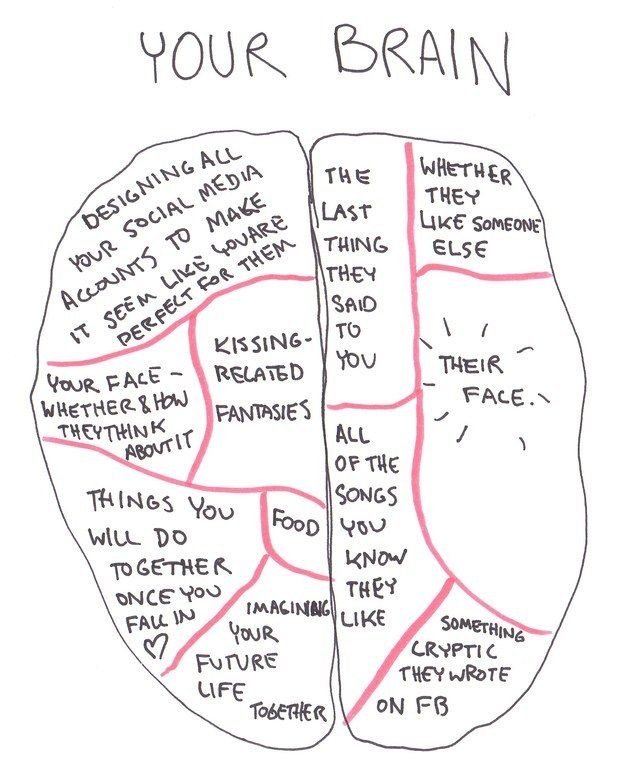 YOUR BRAIN
DESIGNING ALL
YOUR SOCIAL MEDIA
ACCOUNTS TO MAKE
IT SEEM LIKE YOU ARE
PERFECT FOR THEM
YOUR FACE –
WHETHER & HOW
THEY THINK
ABOUT IT
KISSING-
RELATED
FANTASIES
THINGS YOU
WILL DO
TOGETHER
ONCE YOU
FALL IN
♡
FOOD
IMAGINING
YOUR
FUTURE
LIFE
TOGETHER
THE
LAST
THING
THEY
SAID
TO
YOU
WHETHER
THEY
LIKE SOMEONE
ELSE
THEIR
FACE.
ALL
OF THE
SONGS
YOU
KNOW
THEY
LIKE
SOMETHING
CRYPTIC
THEY WROTE
ON FB